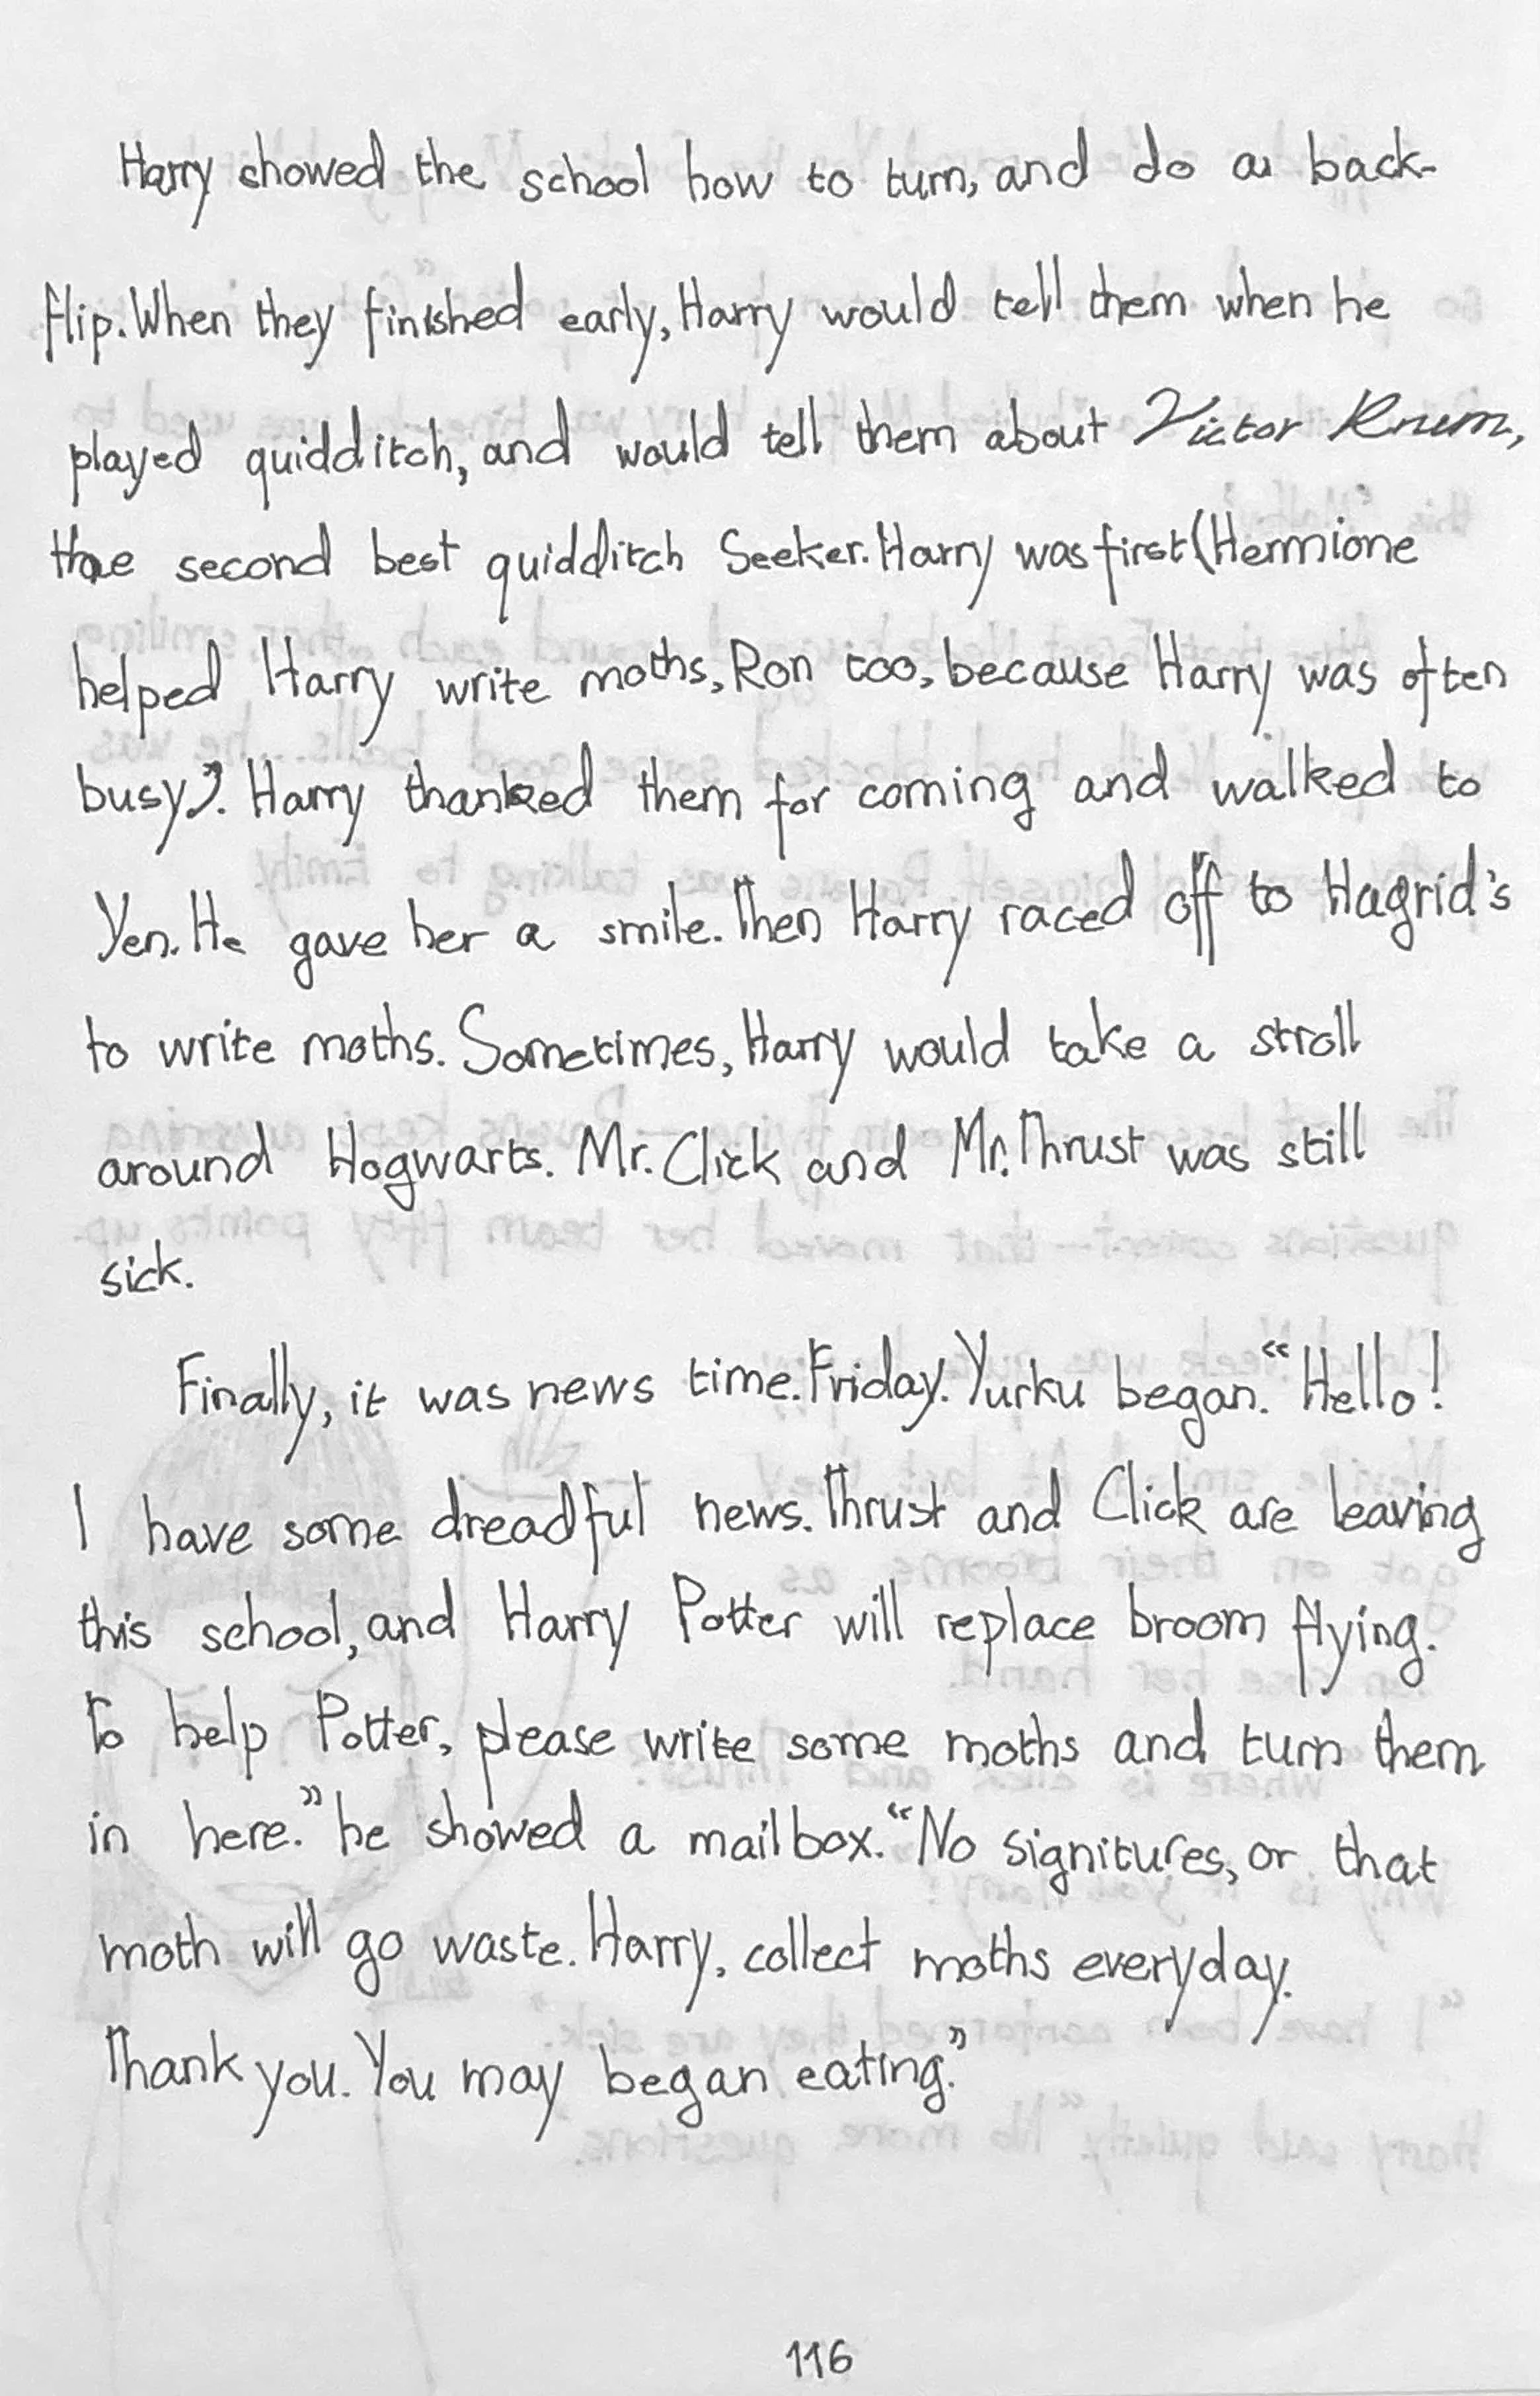 Harry showed the school how to turn, and do a back-
flip. When they finished early, Harry would tell them when he
played quidditch, and would tell them about Victor Krum,
the second best quidditch Seeker. Harry was first (Hermione
helped Harry write moths, Ron too, because Harry was often
busy). Harry thanked them for coming and walked to
Yen. He gave her a smile. Then Harry raced off to Hagrid's
to write moths. Sometimes, Harry would take a stroll
around Hogwarts. Mr. Click and Mr. Thrust was still
sick.
Finally, it was news time. Friday. Yurku began. "Hello!
I have some dreadful news. Thrust and Click are leaving
this school, and Harry Potter will replace broom flying.
To help Potter, please write some moths and turn them
in here." he showed a mailbox. "No signitures, or that
moth will go waste. Harry, collect moths everyday.
Thank you. You may began eating."
116